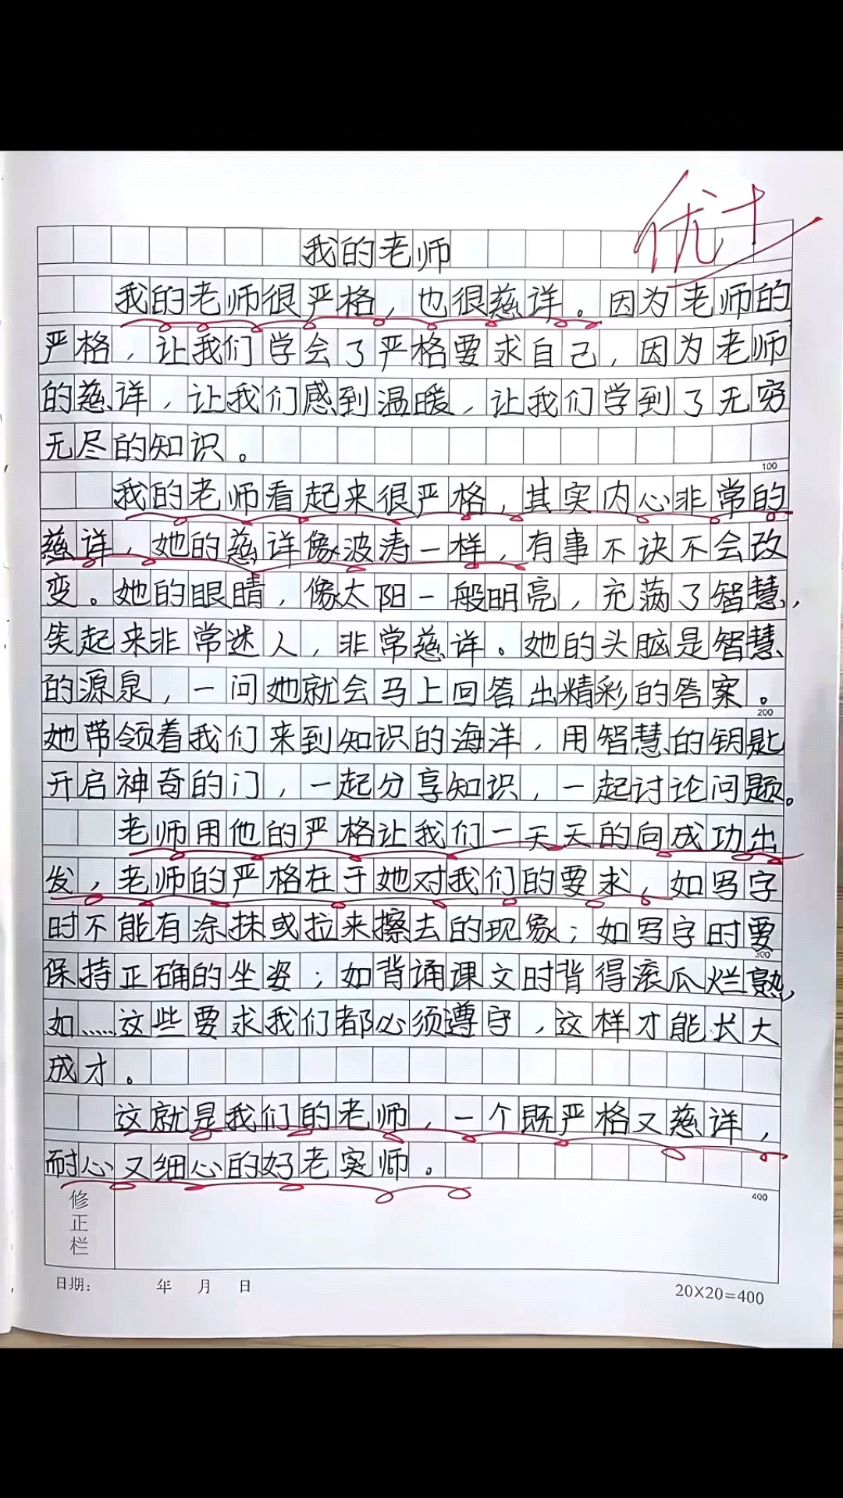 优+
我的老师
我的老师很严格，也很慈详。因为老师的
严格，让我们学会了严格要求自己，因为老师
的慈详，让我们感到温暖，让我们学到了无穷
无尽的知识。
100
我的老师看起来很严格，其实内心非常的
慈详，她的慈详像波涛一样，有事不诀不会改
变。她的眼睛，像太阳一般明亮，充满了智慧，
笑起来非常迷人，非常慈详。她的头脑是智慧
的源泉，一问她就会马上回答出精彩的答案。
200
她带领着我们来到知识的海洋，用智慧的钥匙
开启神奇的门，一起分享知识，一起讨论问题。
老师用他的严格让我们一天天的向成功出
发，老师的严格在于她对我们的要求，如写字
时不能有涂抹或拉来擦去的现象；如写字时要
300
保持正确的坐姿；如背诵课文时背得滚瓜烂熟，
如……这些要求我们都必须遵守，这样才能长大
成才。
这就是我们的老师，一个既严格又慈详，
耐心又细心的好老实师。
400
修正栏
日期： 年 月 日
20X20=400